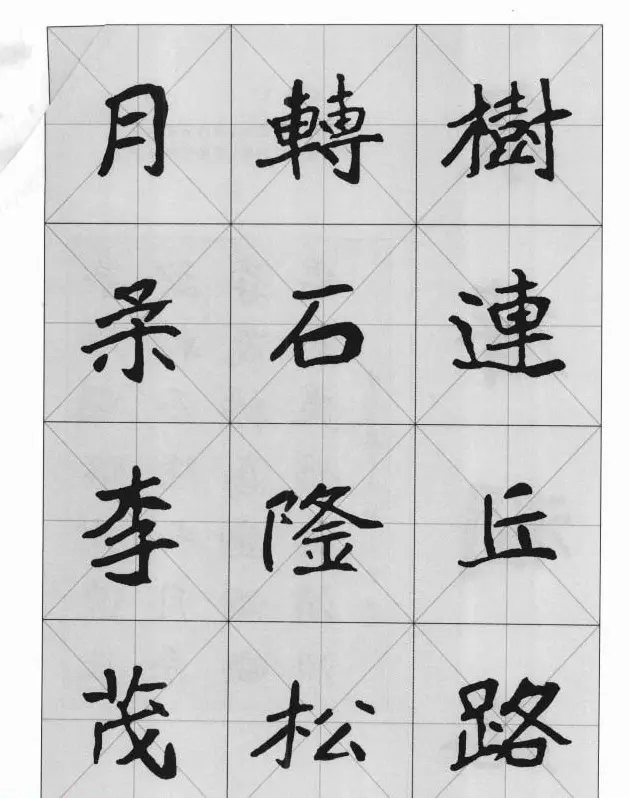 樹連丘路
轉石隆松
月柔李茂